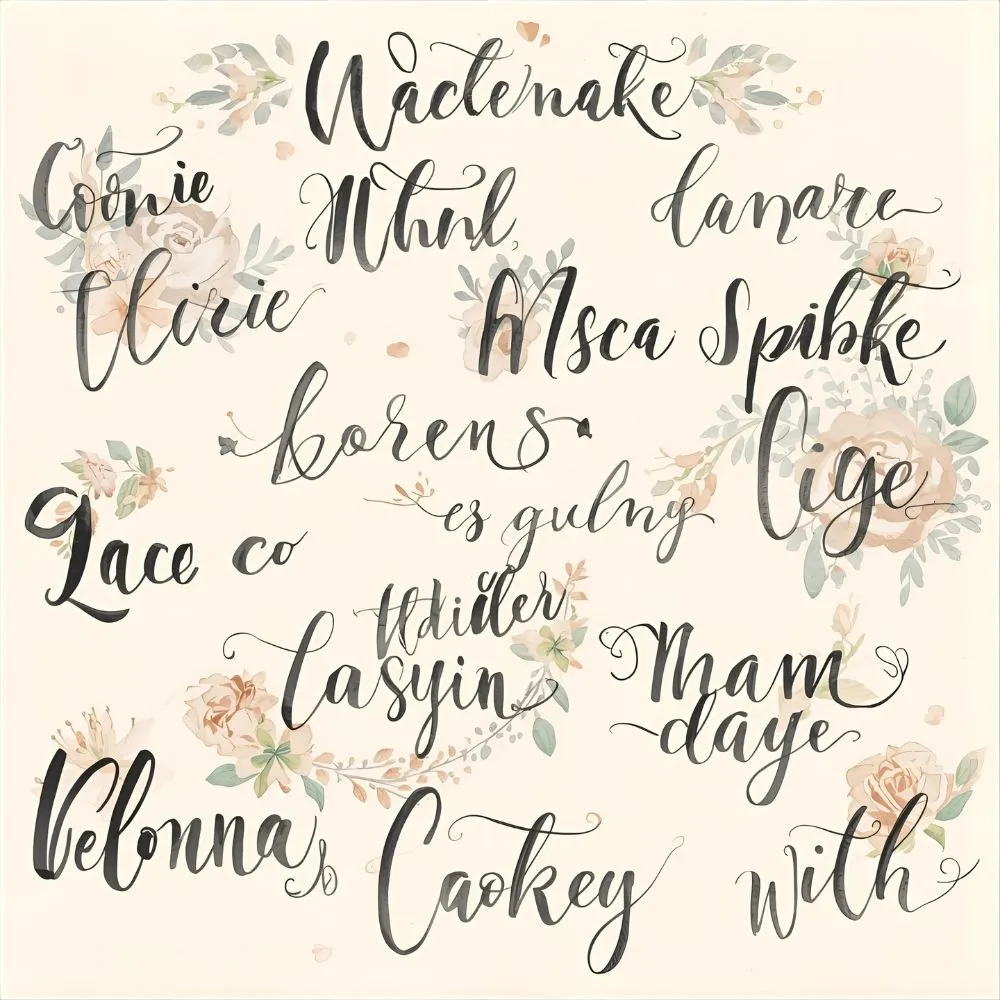 Wactenake
Coonie
Whnl
danare
Clirie
Msca Spibke
borens
Cige
es gulny
Lace co
Hdidler
Casyin
Mam
daye
Velonna
Caokey
with